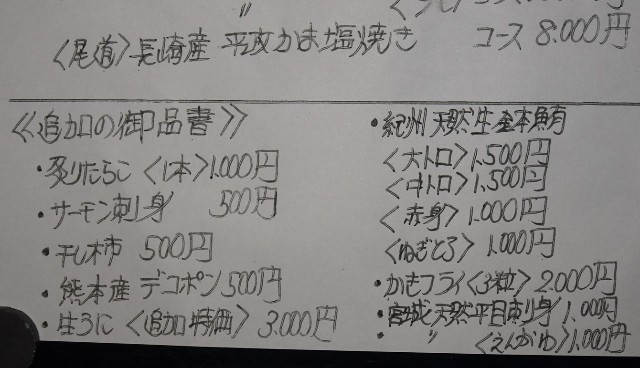 〃
〈尾道〉長崎産 平政かま塩焼き コース 8.000円
《追加の御品書》
・炙りたらこ〈1本〉1.000円
・サーモン刺身 500円
・干し柿 500円
・熊本産 デコポン 500円
・生うに〈追加特価〉3.000円
・紀州 天然 生 本鮪
〈大トロ〉1.500円
〈中トロ〉1.500円
〈赤身〉1.000円
〈ねぎとろ〉1.000円
・かきフライ〈3粒〉2.000円
・宮城 天然 平目刺身 1.000円
・ 〃 〈えんがわ〉1.000円